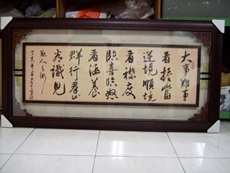 大事難事
看擔當
逆境順境
看襟度
臨喜臨怒
看涵養
群行群止
看識見